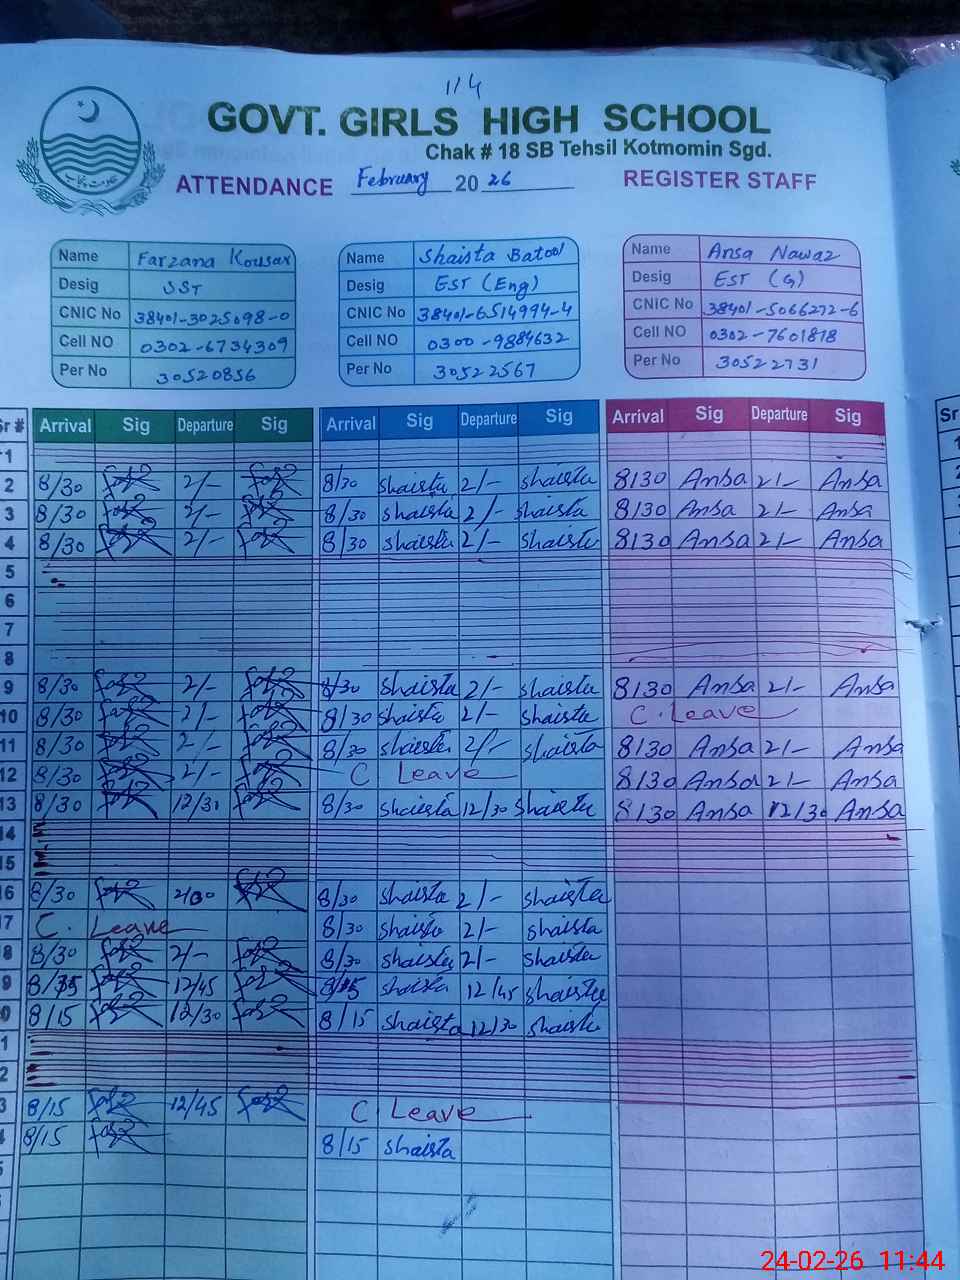 1/4
GOVT. GIRLS HIGH SCHOOL
Chak # 18 SB Tehsil Kotmomin Sgd.
ATTENDANCE February 20 26 REGISTER STAFF
Name Farzana Kousar Name Shaista Batool Name Ansa Nawaz
Desig SST Desig EST (Eng) Desig EST (G)
CNIC No 38401-3025098-0 CNIC No 38401-6514994-4 CNIC No 38401-5066272-6
Cell NO 0302-6734309 Cell NO 0300-9884632 Cell NO 0302-7601818
Per No 30520856 Per No 30522567 Per No 30522731
Sr # Arrival Sig Departure Sig Arrival Sig Departure Sig Arrival Sig Departure Sig Sr
1
2 8/30 2/- 8/30 Shaista 2/- Shaista 8/30 Ansa 2/- Ansa
3 8/30 2/- 8/30 Shaista 2/- Shaista 8/30 Ansa 2/- Ansa
4 8/30 2/- 8/30 Shaista 2/- Shaista 8/30 Ansa 2/- Ansa
5
6
7
8
9 8/30 2/- 8/30 Shaista 2/- Shaista 8/30 Ansa 2/- Ansa
10 8/30 2/- 8/30 Shaista 2/- Shaista C. Leave
11 8/30 2/- 8/30 Shaista 2/- Shaista 8/30 Ansa 2/- Ansa
12 8/30 2/- C Leave 8/30 Ansa 2/- Ansa
13 8/30 12/30 8/30 Shaista 12/30 Shaista 8/30 Ansa 12/30 Ansa
14
15
16 8/30 8/30 Shaista 2/- Shaista
17 C. Leave 8/30 Shaista 2/- Shaista
8 8/30 2/- 8/30 Shaista 2/- Shaista
9 12/45 Shaista 12/45 Shaista
0 8/15 12/30 8/15 Shaista 12/30 Shaista
1
2
3 8/15 12/45 C. Leave
4 8/15 8/15 Shaista
24-02-26 11:44